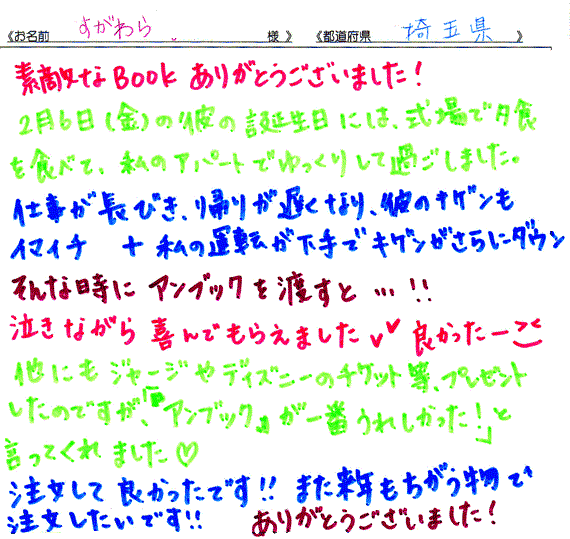 《お名前 すがわら 様 》 《都道府県 埼玉県 》
素敵なBookありがとうございました！
2月6日(金)の彼の誕生日には、式場で夕食
を食べて、私のアパートでゆっくりして過ごしました。
仕事が長びき、帰りが遅くなり、彼のキゲンも
イマイチ ＋ 私の運転が下手でキゲンがさらにダウン
そんな時に アンブックを渡すと …！！
泣きながら 喜んでもらえました 良かったー
他にもジャージやディズニーのチケット等、プレゼント
したのですが、「『アンブック』が一番うれしかった！」と
言ってくれました♡
注文して良かったです!! また来年もちがう物で
注文したいです!! ありがとうございました！